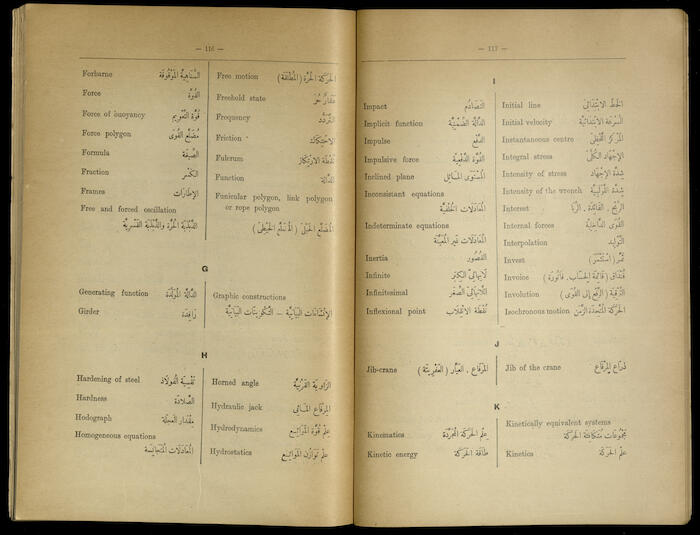 — 116 —
Forbarne السَّاهِيَةُ المَوْقُوفَة
Force القُوَّة
Force of buoyancy قُوَّةُ التَّعْوِيم
Force polygon مُضَلَّعُ القُوَى
Formula الصِّيغَة
Fraction الكَسْر
Frames الإِطَارَات
Free and forced oscillation
الذَّبْذَبَةُ الحُرَّة والذَّبْذَبَةُ القَسْرِيَّة
Free motion الحَرَكَةُ الحُرَّة (المُطْلَقَة)
Freehold state عَقَارٌ حُرّ
Frequency التَّرَدُّد
Friction الاِحْتِكَاك
Fulcrum نُقْطَةُ الاِرْتِكَاز
Function الدَّالَّة
Funicular polygon, link polygon
or rope polygon
المُضَلَّعُ الحَبْلِيّ (المُسَلَّعُ الخَيْطِيّ)
G
Generating function الدَّالَّةُ المُوَلِّدَة
Girder رَافِدَة
Graphic constructions
الإِنْشَاءَات البَيَانِيَّة – التَّكْوِينَات البَيَانِيَّة
H
Hardening of steel تَقْسِيَةُ الفُولَاذ
Hardness الصَّلَادَة
Hodograph
Homogeneous equations
المُعَادَلَات المُتَجَانِسَة
Horned angle الزَّاوِيَة القَرْنِيَّة
Hydraulic jack المِرْفَاع المَائِي
Hydrodynamics عِلْمُ قُوَّة المَوَائِع
Hydrostatics عِلْمُ تَوَازُن المَوَائِع
— 117 —
I
Impact التَّصَادُم
Implicit function الدَّالَّة الضِّمْنِيَّة
Impulse الدَّفْع
Impulsive force القُوَّة الدَّفْعِيَّة
Inclined plane المُسْتَوَى المَائِل
Inconsistant equations
المُعَادَلَات
Indeterminate equations
المُعَادَلَات غَيْر المُعَيَّنَة
Inertia القُصُور
Infinite لَانِهَائِيّ الكِبَر
Infinitesimal اللَّانِهَائِيّ الصِّغَر
Inflexional point نُقْطَة الاِنْقِلَاب
Initial line الخَطّ الاِبْتِدَائِيّ
Initial velocity السُّرْعَة الاِبْتِدَائِيَّة
Instantaneous centre المَرْكَز اللَّحْظِيّ
Integral stress الإِجْهَاد الكُلِّيّ
Intensity of stress شِدَّة الإِجْهَاد
Intensity of the wrench شِدَّة اللَّوْلَبِيَّة
Interest الرِّبْح . الفَائِدَة . الرِّبَا
Internal forces القُوَى الدَّاخِلِيَّة
Interpolation التَّوْلِيد
Invest ثَمَّرَ (اسْتَثْمَرَ)
Invoice (قَائِمَة الحِسَاب. فَاتُورَة)
Involution التَّرْقِيَة (الرَّفْع إِلَى القُوَى)
Isochronous motion الحَرَكَة المُتَّحِدَة الزَّمَن
J
Jib-crane المِرْفَاع . العَيَّار
Jib of the crane ذِرَاع المِرْفَاع
K
Kinematics عِلْم الحَرَكَة المُجَرَّدَة
Kinetic energy طَاقَة الحَرَكَة
Kinetically equivalent systems
مَجْمُوعَات مُتَكَافِئَة الحَرَكَة
Kinetics عِلْم الحَرَكَة